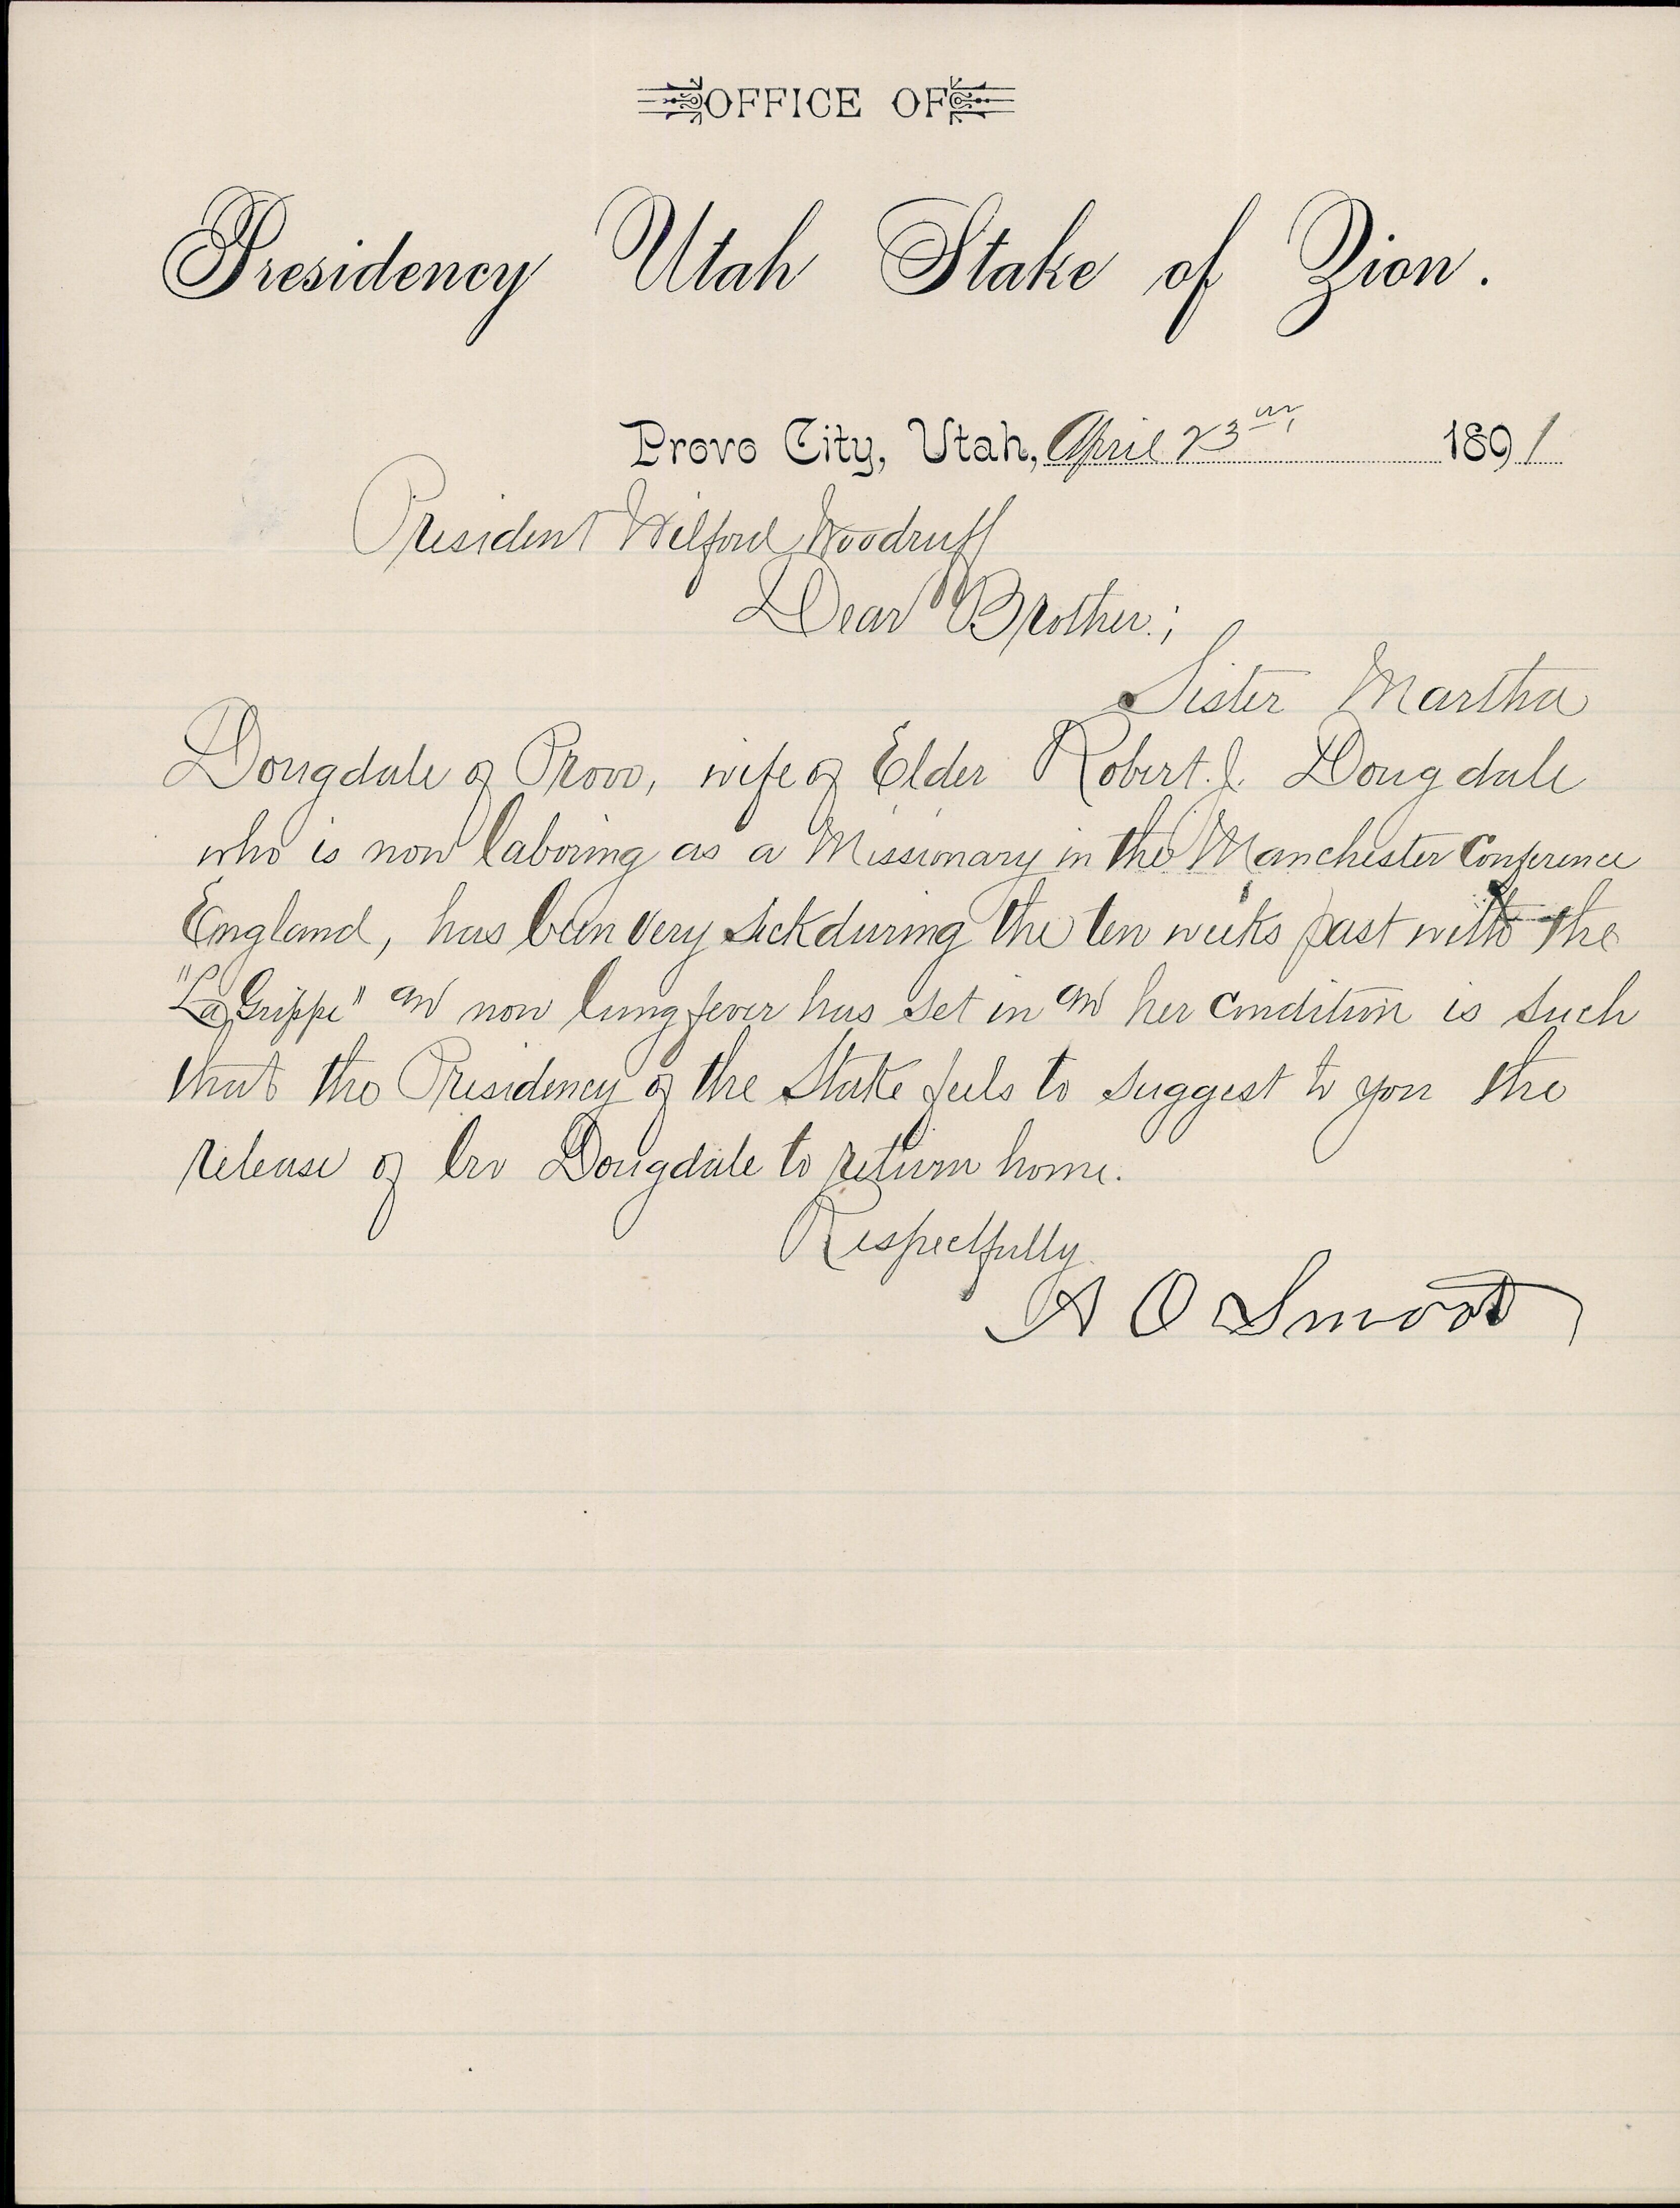 OFFICE OF
Presidency Utah Stake of Zion.
Provo City, Utah, April 23rd 1891
President Wilford Woodruff
Dear Brother.;
Sister Martha
Dougdale of Provo, wife of Elder Robert. J. Dougdale
who is now laboring as a Missionary in the Manchester Conference
England, has been very sick during the ten weeks past with the
"La Grippe" and now lung fever has set in and her condition is such
that the Presidency of the Stake feels to suggest to you the
release of bro Dougdale to return home.
Respectfully
A O Smoot